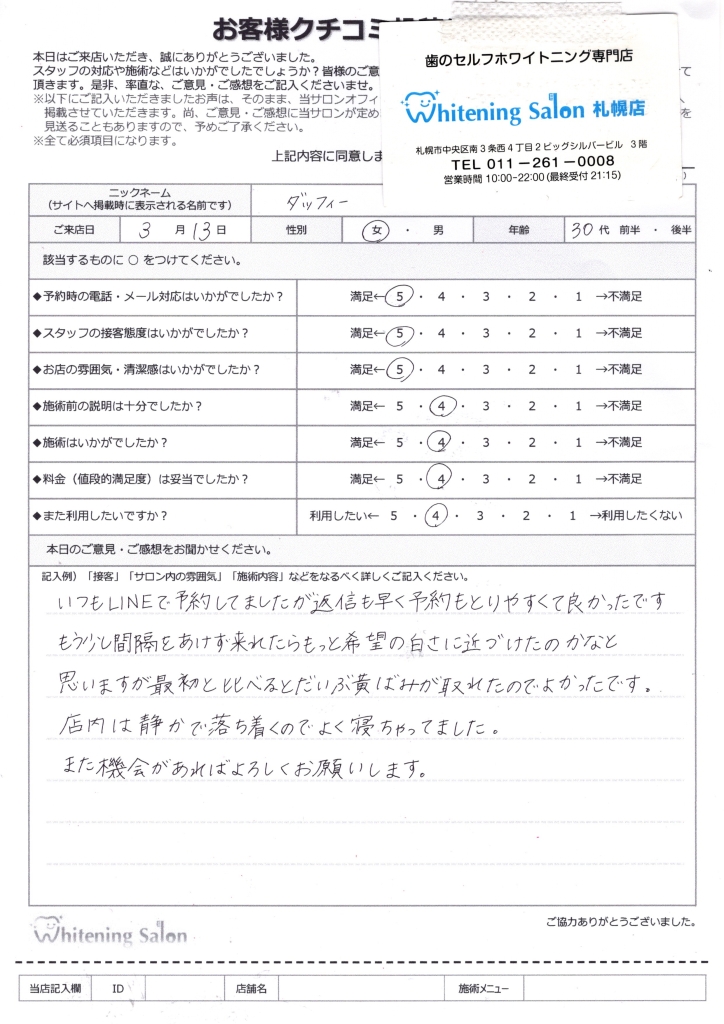 お客様クチコミ
本日はご来店いただき、誠にありがとうございました。
スタッフの対応や施術などはいかがでしたでしょうか？皆様のご意
頂きます。是非、率直な、ご意見・ご感想をご記入くださいませ。
※以下にご記入いただきましたお声は、そのまま、当サロンオフィ
掲載させていただきます。尚、ご意見・ご感想に当サロンが定め
見送ることもありますので、予めご了承ください。
※全て必須項目になります。
上記内容に同意しま
て
を
歯のセルフホワイトニング専門店
Whitening Salon 札幌店
札幌市中央区南3条西4丁目2ビッグシルバービル 3階
TEL 011－261－0008
営業時間 10:00-22:00 (最終受付 21:15)
ニックネーム
（サイトへ掲載時に表示される名前です）
ダッフィー
ご来店日 3 月 13 日 性別 女 ・ 男 年齢 30 代 前半 ・ 後半
該当するものに ○ をつけてください。
◆予約時の電話・メール対応はいかがでしたか？ 満足← 5 ・ 4 ・ 3 ・ 2 ・ 1 →不満足
◆スタッフの接客態度はいかがでしたか？ 満足← 5 ・ 4 ・ 3 ・ 2 ・ 1 →不満足
◆お店の雰囲気・清潔感はいかがでしたか？ 満足← 5 ・ 4 ・ 3 ・ 2 ・ 1 →不満足
◆施術前の説明は十分でしたか？ 満足← 5 ・ 4 ・ 3 ・ 2 ・ 1 →不満足
◆施術はいかがでしたか？ 満足← 5 ・ 4 ・ 3 ・ 2 ・ 1 →不満足
◆料金（値段的満足度）は妥当でしたか？ 満足← 5 ・ 4 ・ 3 ・ 2 ・ 1 →不満足
◆また利用したいですか？ 利用したい← 5 ・ 4 ・ 3 ・ 2 ・ 1 →利用したくない
本日のご意見・ご感想をお聞かせください。
記入例）「接客」「サロン内の雰囲気」「施術内容」などをなるべく詳しくご記入ください。
いつもLINEで予約してましたが返信も早く予約もとりやすくて良かったです
もう少し間隔をあけず来れたらもっと希望の白さに近づけたのかなと
思いますが最初と比べるとだいぶ黄ばみが取れたのでよかったです。
店内は静かで落ち着くのでよく寝ちゃってました。
また機会があればよろしくお願いします。
Whitening Salon
ご協力ありがとうございました。
当店記入欄 ID 店舗名 施術メニュー